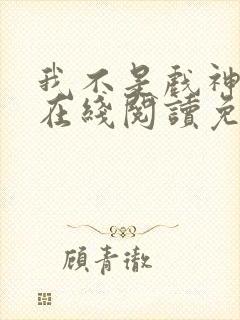 我不是戲神
在綫閱讀免
顧青澈